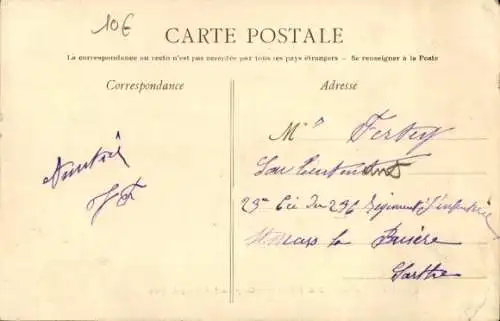 10€
CARTE POSTALE
La correspondance au recto n'est pas acceptée par tous les pays étrangers — Se renseigner à la Poste
Correspondance
Adresse
Amitié
Mr Fertey
Sous Lieutenant
29me Cie du 236 Régiment d'infanterie
St Mars la Brière
Sarthe